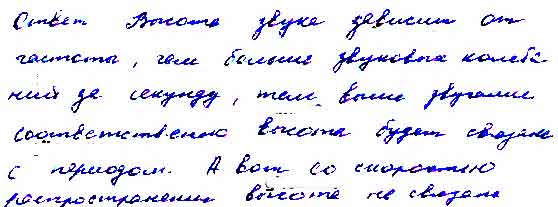 Ответ Высота звука зависит от
частоты, чем больше звуковых колеба
ний за секунду, тем выше звучание
Соответственно высота будет связана
с периодом. А вот со скоростью
распространения высота не связана